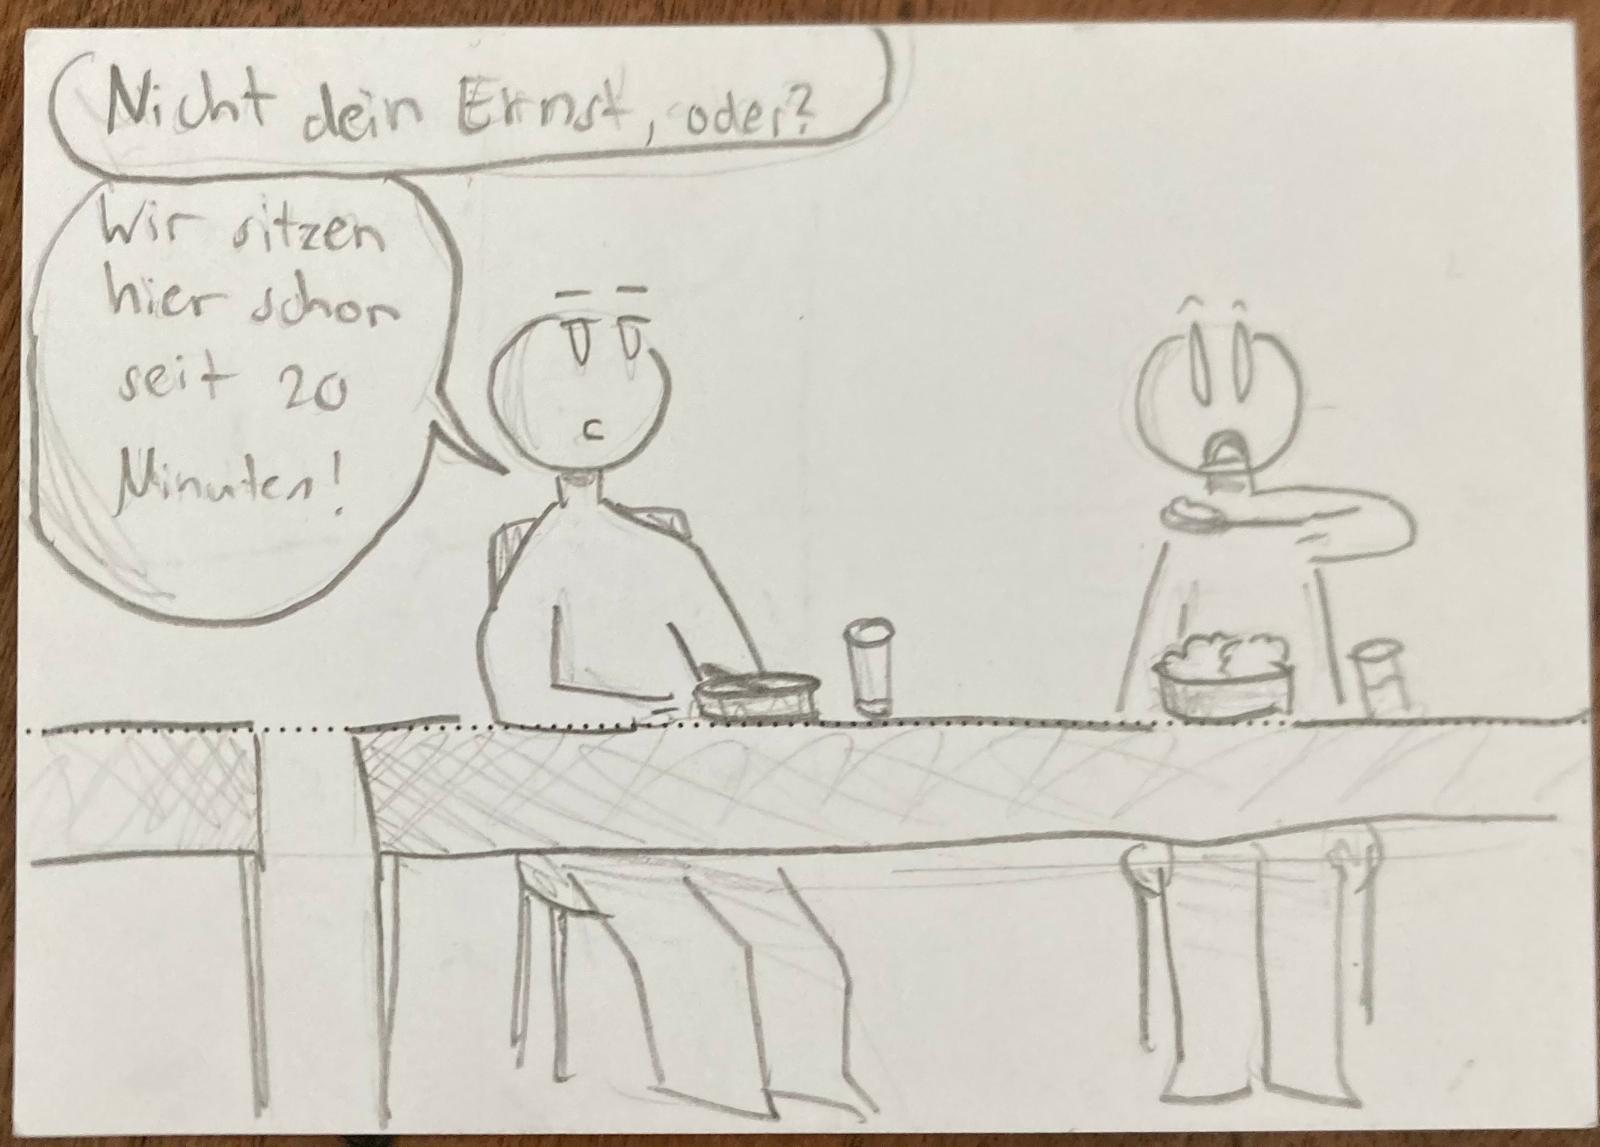 Nicht dein Ernst, oder?
Wir sitzen
hier schon
seit 20
Minuten!